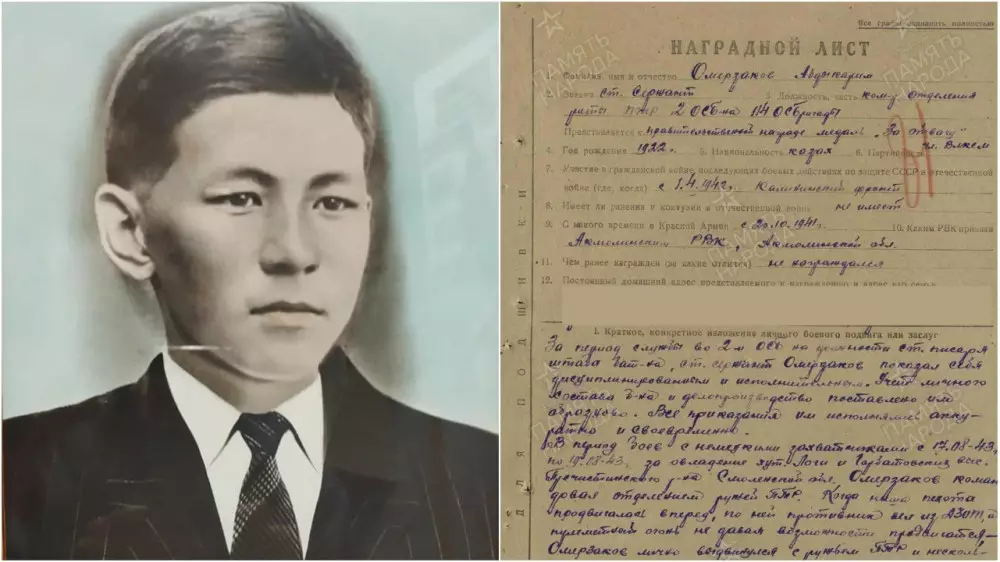 Все графы заполнять полностью
НАГРАДНОЙ ЛИСТ
1. Фамилия, имя и отчество Омерзаков Абдыкарим
2. Звание ст. сержант 3. Должность, часть ком-р отделения
роты ПТР 2 ОСБ-на 114 ОСБригады
Представляется к правительственной награде медаль „За отвагу"
4. Год рождения 1922 г. 5. Национальность казах 6. Партийность чл. ВЛКСМ
7. Участие в гражданской войне, последующих боевых действиях по защите СССР и отечественной
войне (где, когда) с 1.4.1942 г. Калининский фронт
8. Имеет ли ранения и контузии в отечественной войне не имеет
9. С какого времени в Красной Армии с 20.10.1941 г. 10. Каким РВК призван
Акмолинским РВК, Акмолинской обл.
11. Чем ранее награжден (за какие отличия) не награждался
12. Постоянный домашний адрес представляемого к награждению и адрес его семьи
I. Краткое, конкретное изложение личного боевого подвига или заслуг
За период службы во 2-м ОСБ на должности ст. писаря
штаба бат-на, ст. сержант Омерзаков показал себя
дисциплинированным и исполнительным. Учет личного
состава б-на и делопроизводство поставлено им
образцово. Все приказания им исполнялись акку-
ратно и своевременно.
В период боев с немецкими захватчиками с 17.08-43 г.
по 19.08-43 г. за овладение хут. Логи и
р-на Смоленской обл. Омерзаков коман-
довал отделением ружей ПТР. Когда наша пехота
продвигалась вперед, по ней противник вел из ДЗОТ,
пулеметный огонь не давая возможности продвигаться
Омерзаков лично выдвинулся с ружьем ПТР и несколь-
ДЛЯ ПОДШИВКИ
ПАМЯТЬ
НАРОДА
ПАМЯТЬ
НАРОДА
ПАМЯТЬ
НАРОДА